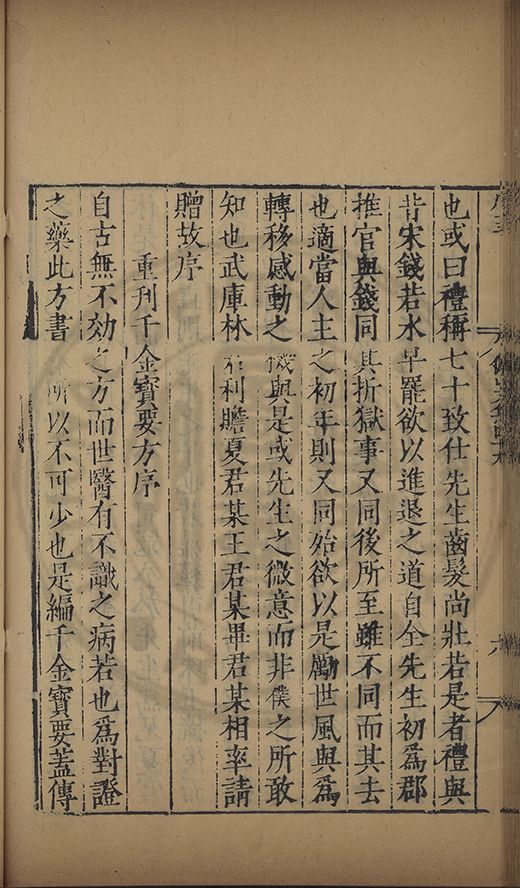 也或曰禮稱七十致仕先生齒髮尚壯若是者禮與
昔宋錢若水早罷欲以進退之道自全先生初爲郡
推官與錢同其折獄事又同後所至雖不同而其去
也適當人主之初年則又同始欲以是勵世風與爲
轉移感動之機與是或先生之微意而非僕之所敢
知也武庫林君利瞻夏君某王君某畢君某相率請
贈故序
重刊千金寶要方序
自古無不効之方而世醫有不識之病若也爲對證
之藥此方書所以不可少也是編千金寶要蓋傳